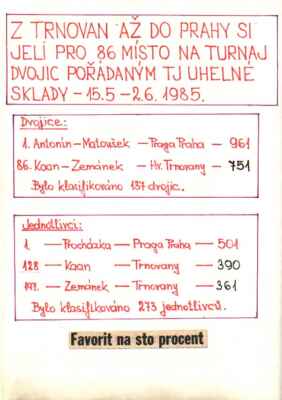 Z TRNOVAN AŽ DO PRAHY SI
JELI PRO 86 MÍSTO NA TURNAJ
DVOJIC POŘÁDANÝM TJ UHELNÉ
SKLADY - 15.5 - 2.6. 1985.
Dvojice:
1. Antonín - Matoušek - Praga Praha - 961
86. Kaan - Zemánek - Hr. Trnovany - 751
Bylo klasifikováno 137 dvojic.
Jednotlivci:
1 - Procházka - Praga Praha - 501
128 - Kaan - Trnovany - 390
197. - Zemánek - Trnovany - 361
Bylo klasifikováno 273 jednotlivců.
Favorit na sto procent